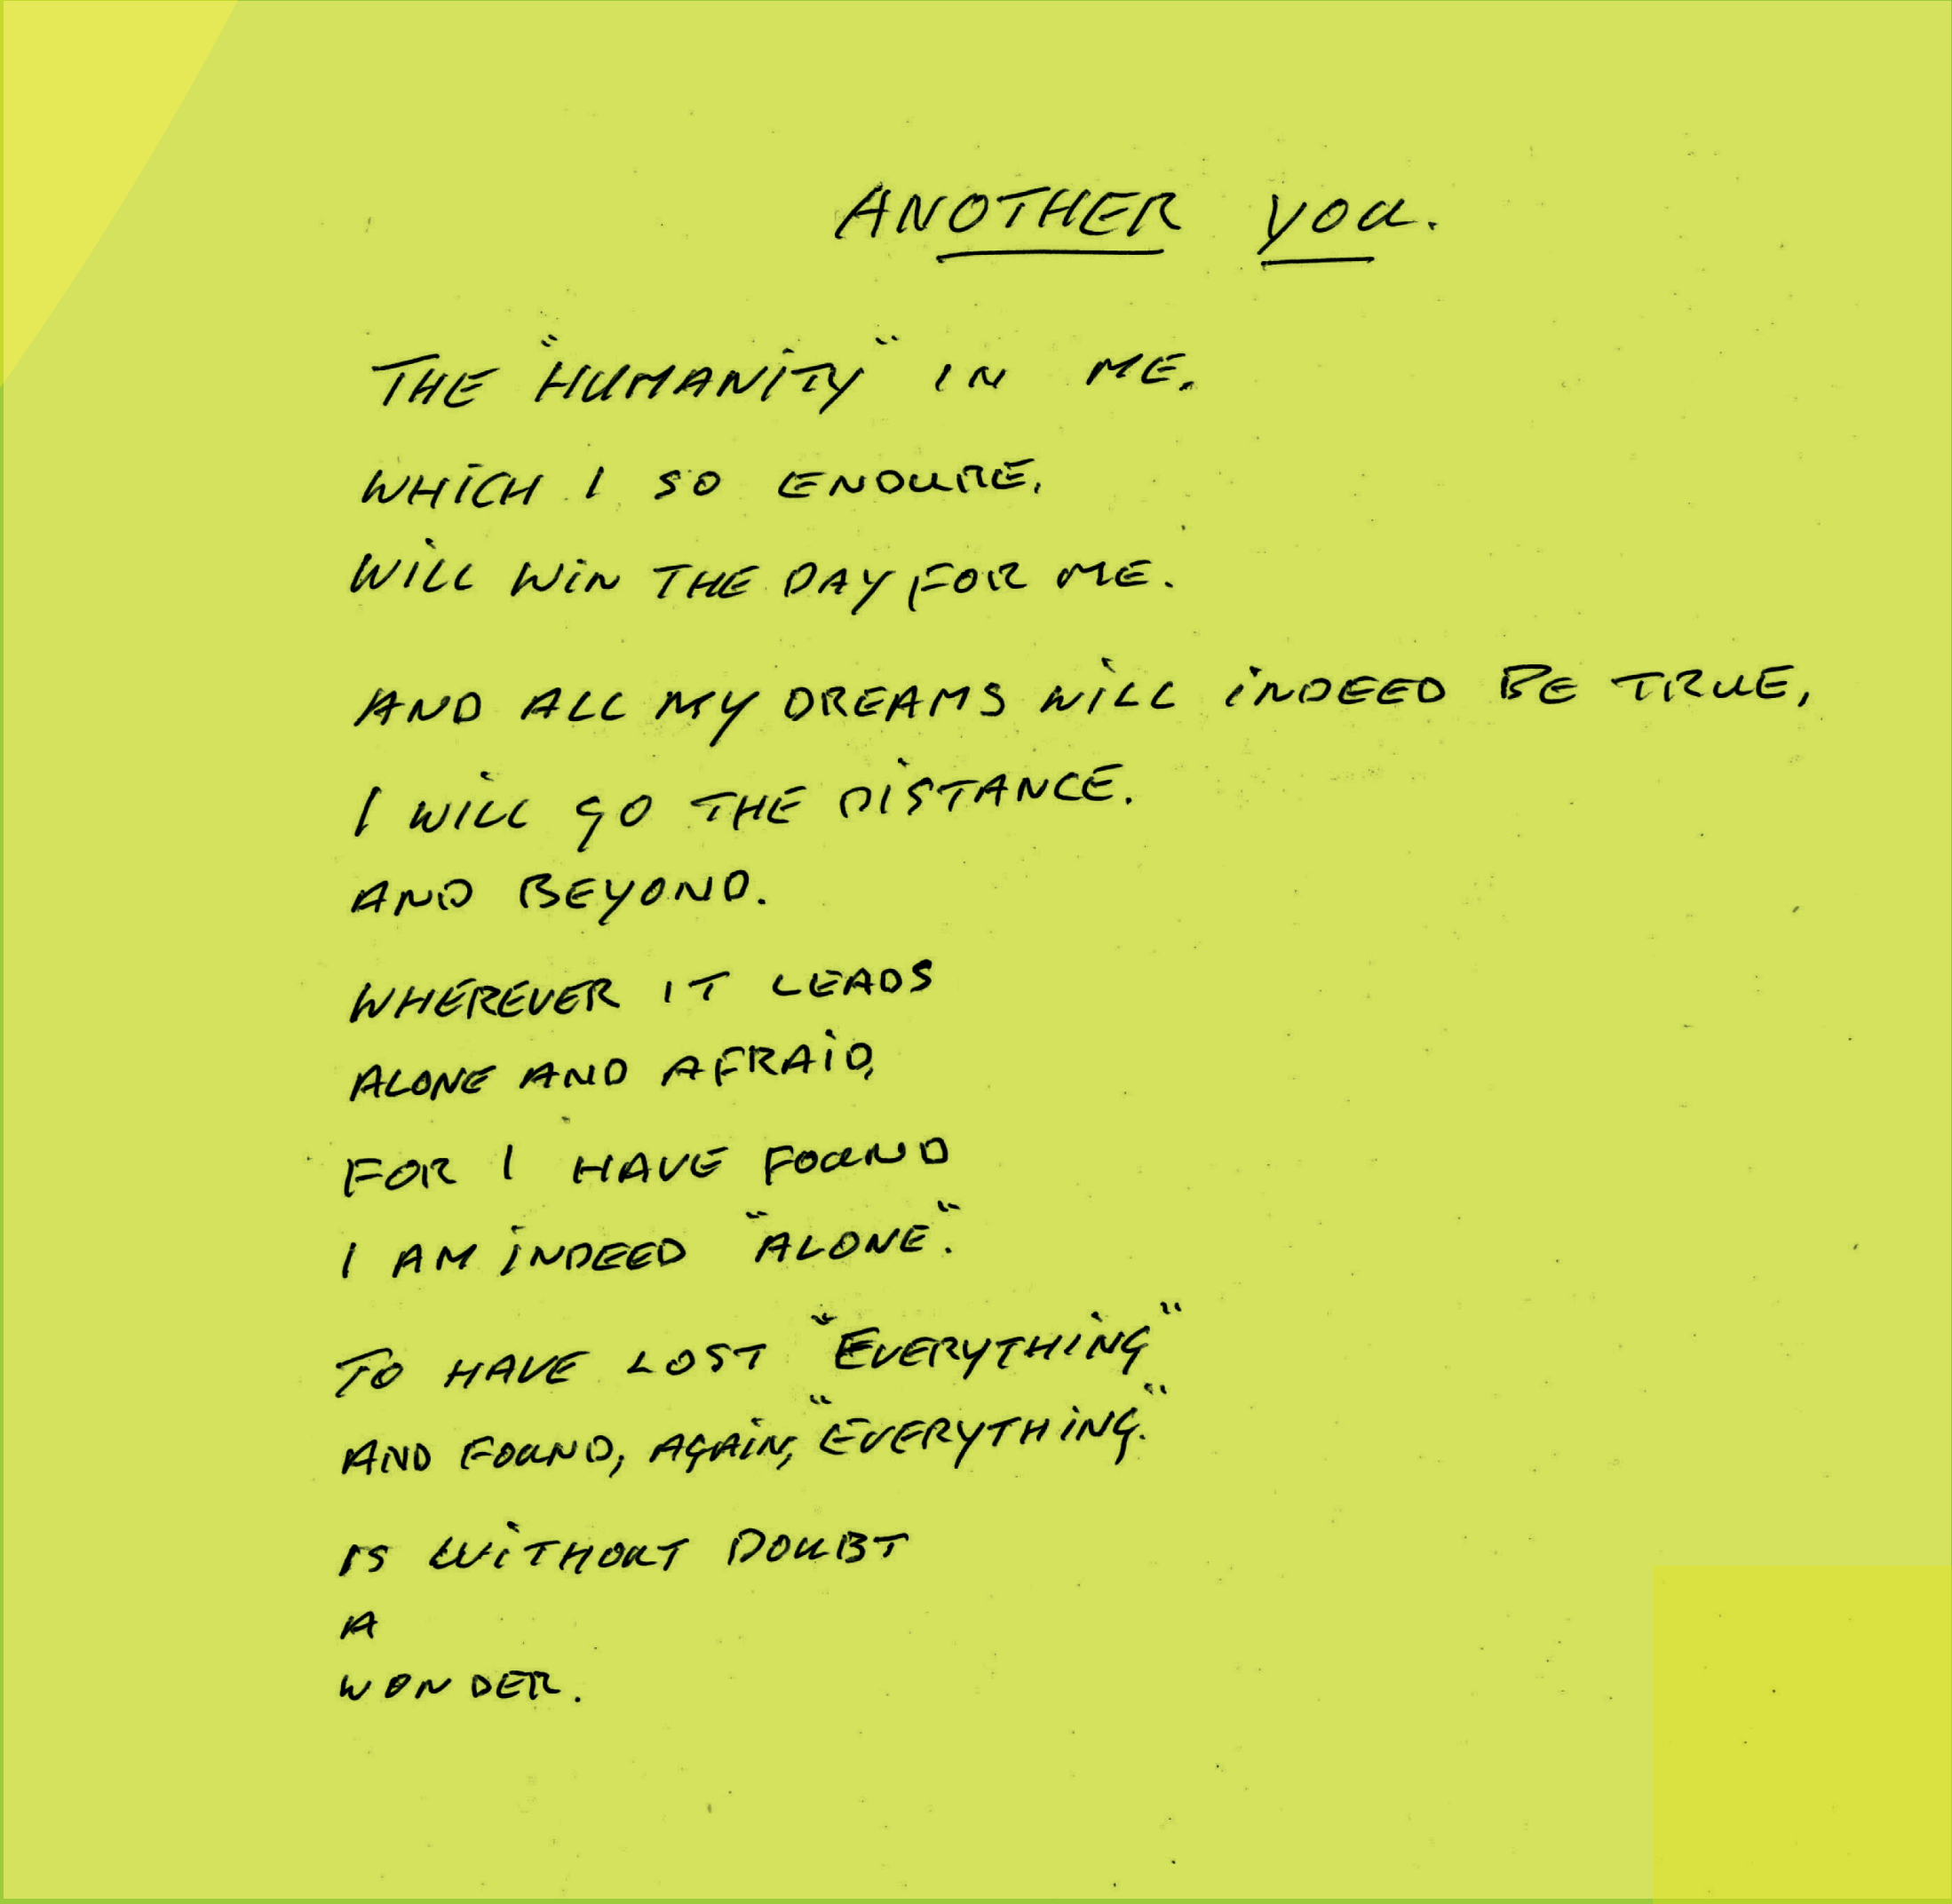 ANOTHER YOU.
THE "HUMANITY" IN ME.
WHICH I SO ENDURE,
WILL WIN THE DAY FOR ME.
AND ALL MY DREAMS WILL INDEED BE TRUE,
I WILL GO THE DISTANCE.
AND BEYOND.
WHEREVER IT LEADS
ALONE AND AFRAID,
FOR I HAVE FOUND
I AM INDEED "ALONE".
TO HAVE LOST "EVERYTHING"
AND FOUND, AGAIN, "EVERYTHING."
IS WITHOUT DOUBT
A
WONDER.